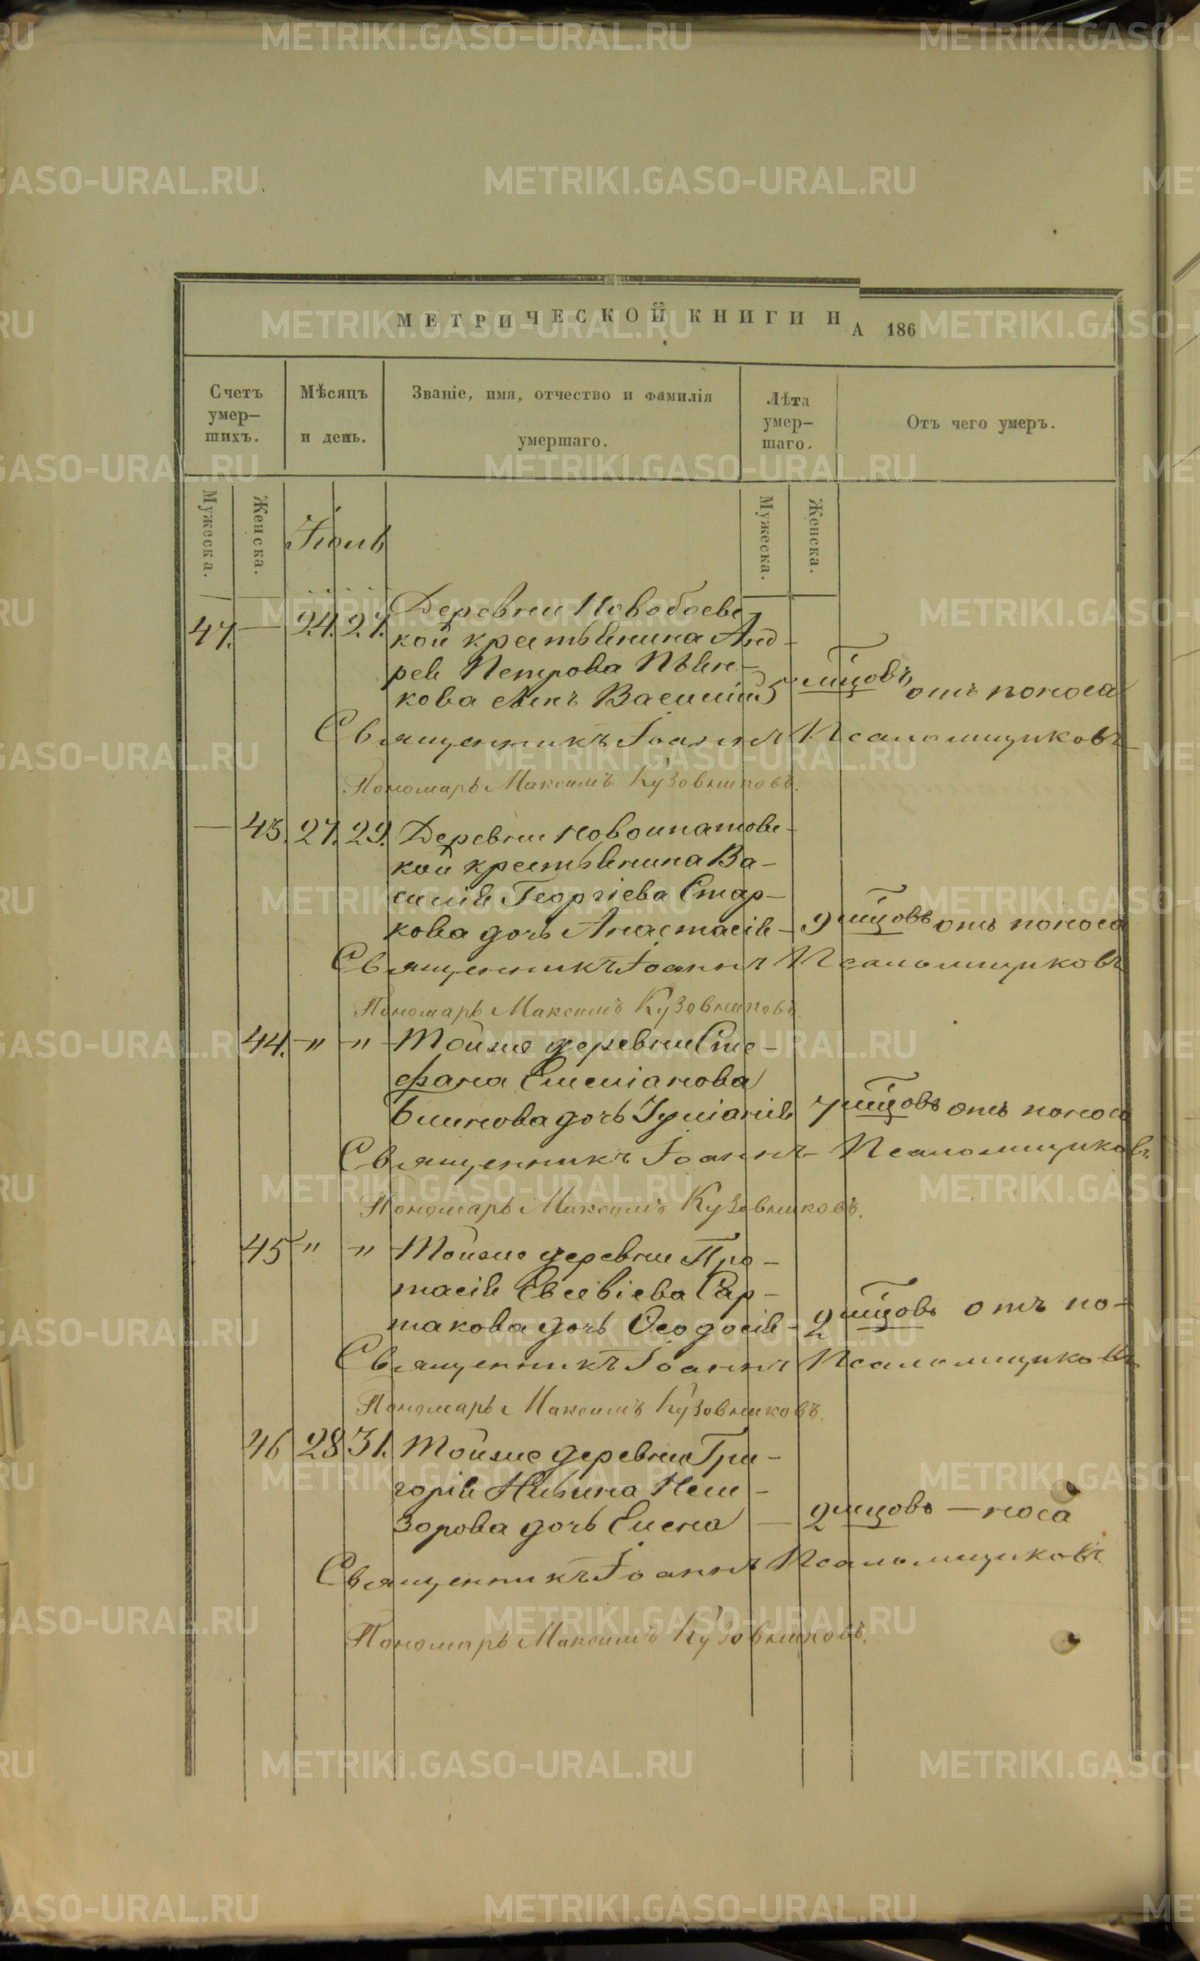 МЕТРИЧЕСКОЙ КНИГИ НА 186
Счетъ умер-шихъ.
Мѣсяцъ и день.
Званіе, имя, отчество и фамилія умершаго.
Лѣта умер-шаго.
Отъ чего умеръ.
Мужеска.
Женска.
Мужеска.
Женска.
Іюль
47. — 24. 27. Деревни Новобоевс
кой крестьянина Анд-
рея Петрова Пьян-
кова сынъ Василій 5 мцовъ отъ поноса
Священникъ Іоаннъ Псаломщиковъ
Пономарь Максимъ Кузовниковъ.
— 43. 27. 29. Деревни Новоипатовс-
кой крестьянина Ва-
силія Георгіева Стар-
кова дочь Анастасія - 9 мцовъ отъ поноса
Священникъ Іоаннъ Псаломщиковъ
Пономарь Максимъ Кузовниковъ.
44. -„ -„ - Тойже деревни Сте-
фана Емеліанова
Блинова дочь Іуліанія 7 мцовъ отъ поноса
Священникъ Іоаннъ Псаломщиковъ
Пономарь Максимъ Кузовниковъ.
45 -„ -„ - Тойже деревни Про-
тасія Евсевіева Сар-
такова дочь Ѳеодосія - 2 мцовъ отъ по-
Священникъ Іоаннъ Псаломщиковъ
Пономарь Максимъ Кузовниковъ.
46 28 31. Тойже деревни Гри-
горія Ильина
дочь Елена — 2 мцовъ — носа
Священникъ Іоаннъ Псаломщиковъ
Пономарь Максимъ Кузовниковъ.
METRIKI.GASO-URAL.RU